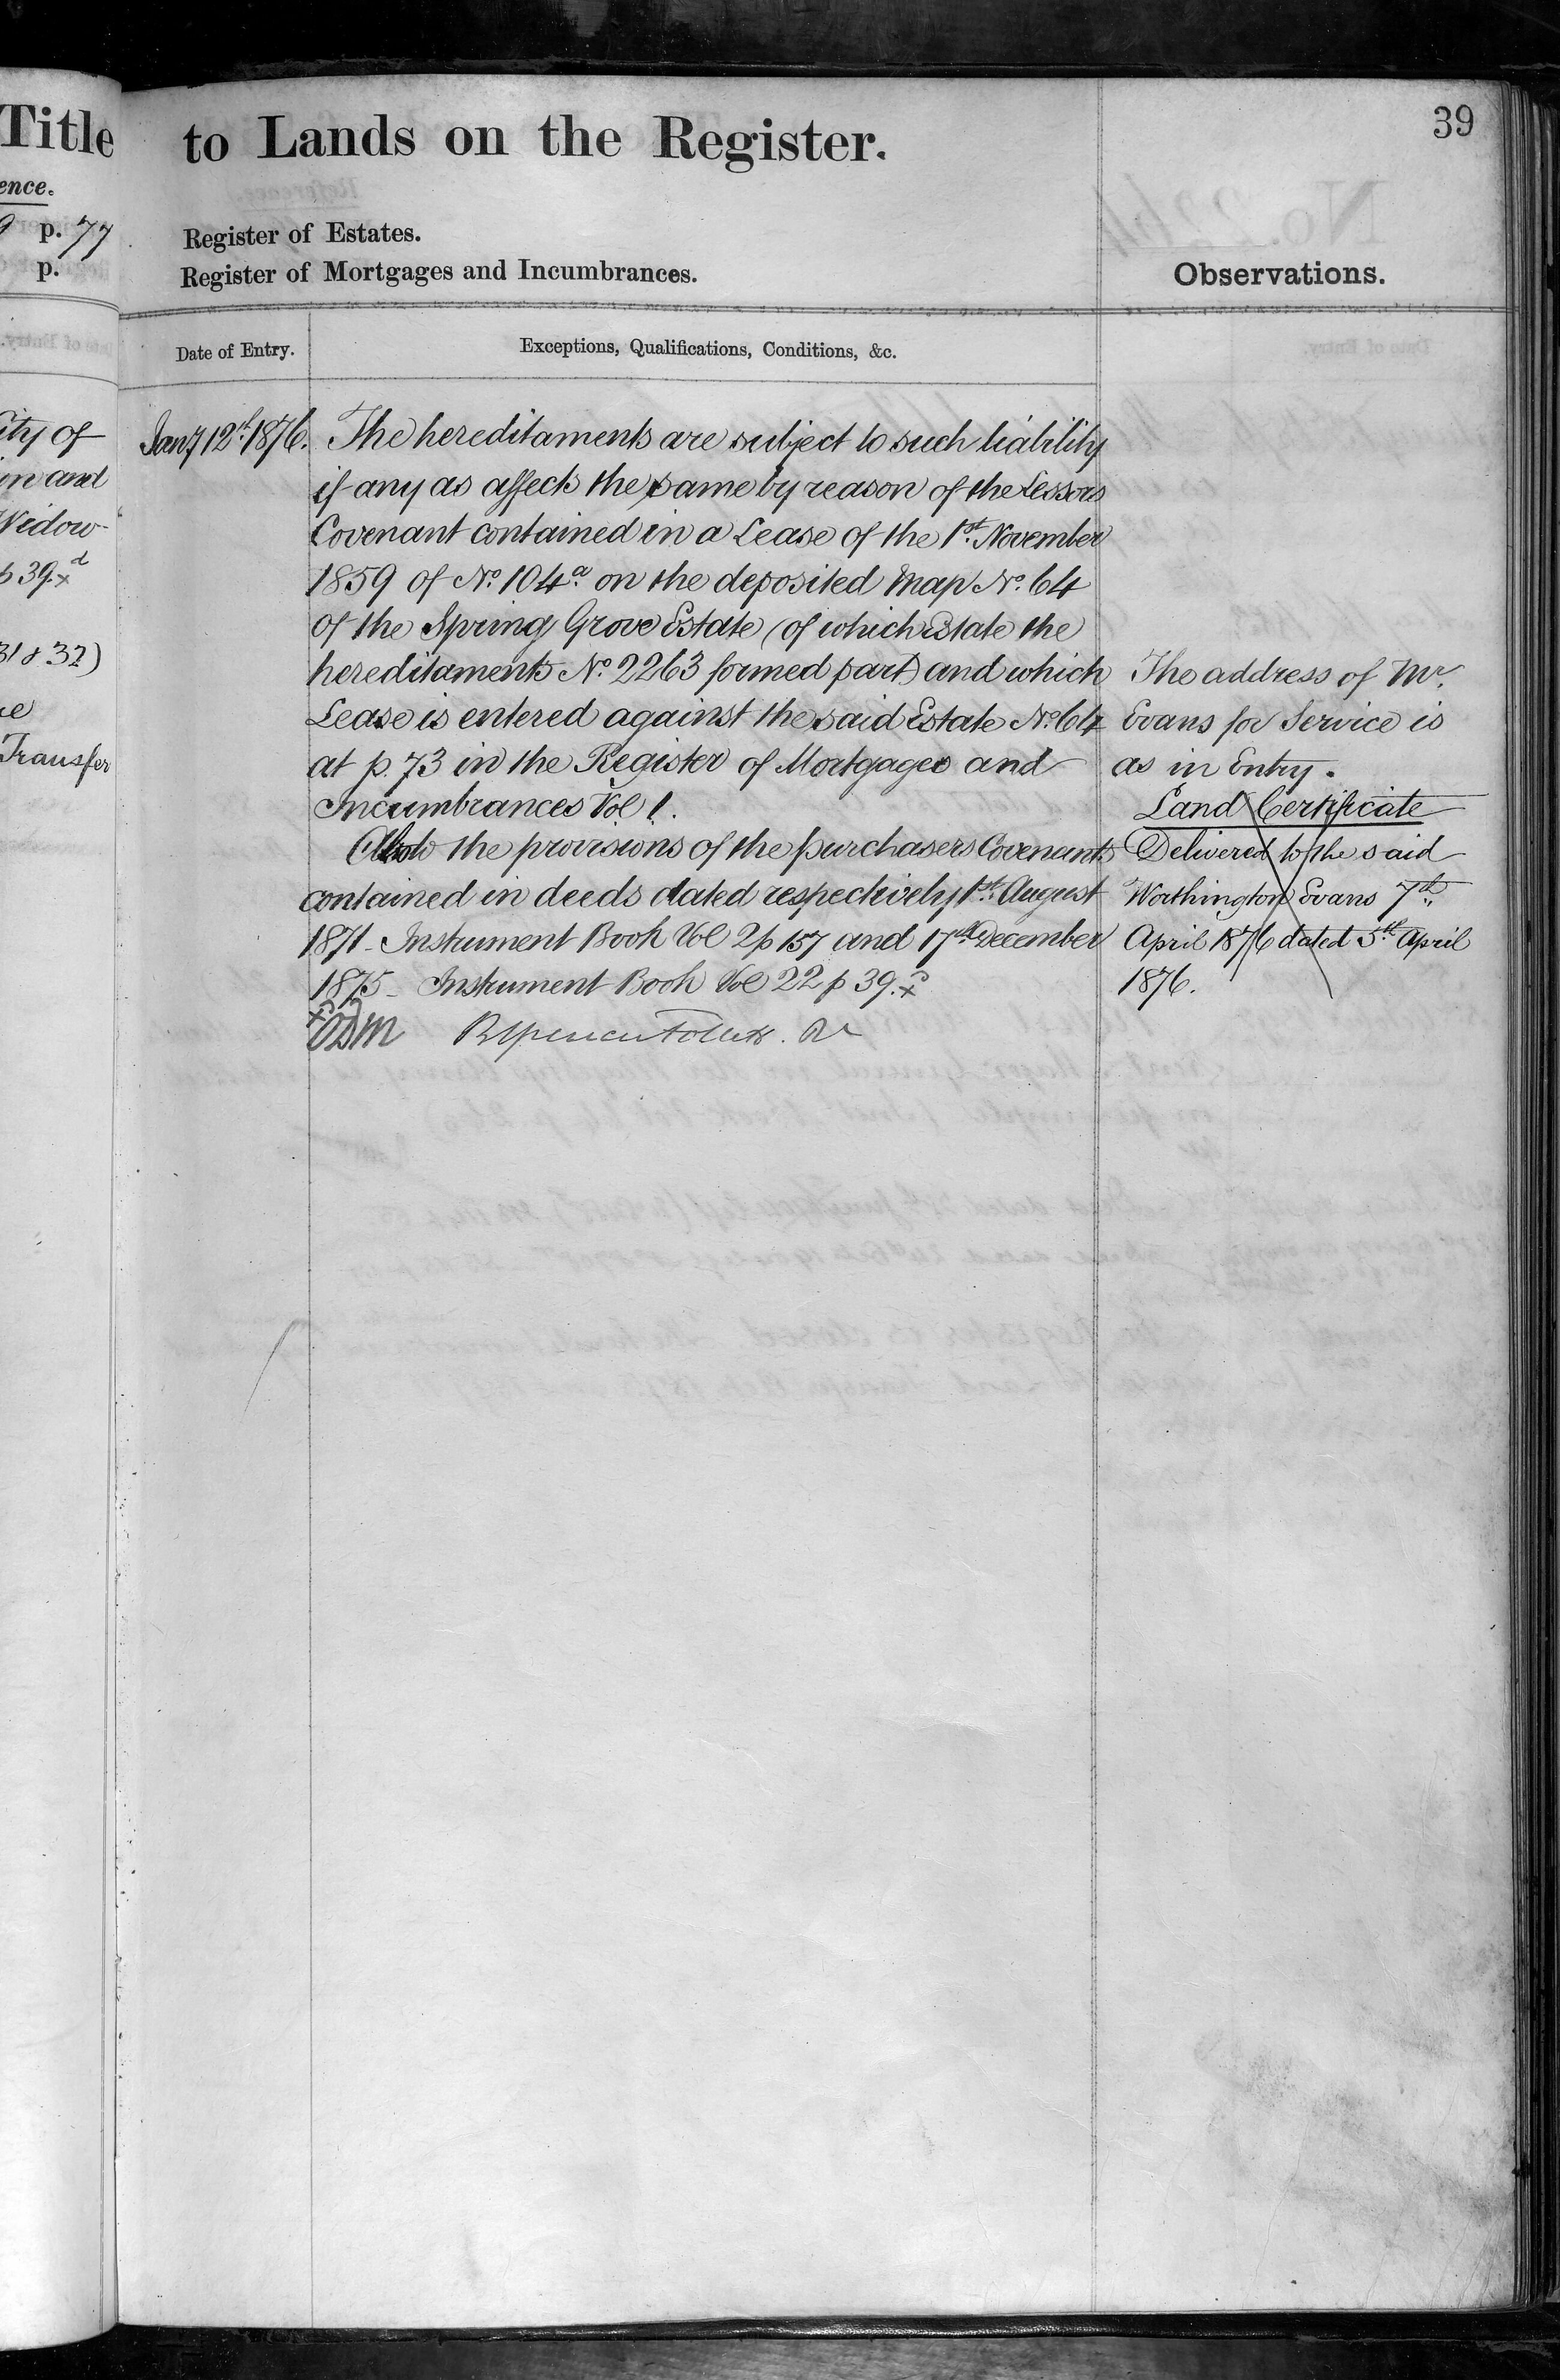 Title
ence.
p. 77
p.
City of
in and
Widow
p 39.x d
31 & 32)
Transfer
to Lands on the Register.
39
Register of Estates.
Register of Mortgages and Incumbrances.
Observations.
Date of Entry.
Exceptions, Qualifications, Conditions, &c.
Jany 12th 1876. The hereditaments are subject to such liability
if any as affects the same by reason of the Lessors
Covenant contained in a Lease of the 1st November
1859 of No. 104a on the deposited Map No. 64
of the Spring Grove Estate (of which Estate the
hereditaments No. 2263 formed part) and which
Lease is entered against the said Estate No. 64
at p. 73 in the Register of Mortgages and
Incumbrances Vol 1.
Also to the provisions of the purchasers Covenants
contained in deeds dated respectively 1st August
1871 - Instrument Book Vol 2 p 157 and 17th December
1875 - Instrument Book Vol 22 p 39.x
The address of Mr.
Evans for Service is
as in Entry.
Land Certificate
Delivered to the said
Worthington Evans 7th
April 1876 dated 5th April
1876.